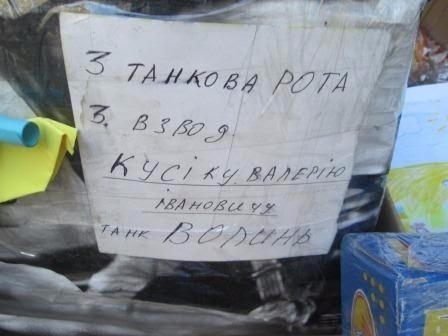 3 ТАНКОВА РОТА
3. ВЗВОД
КУСІКУ ВАЛЕРІЮ
ІВАНОВИЧУ
ТАНК ВОЛИНЬ